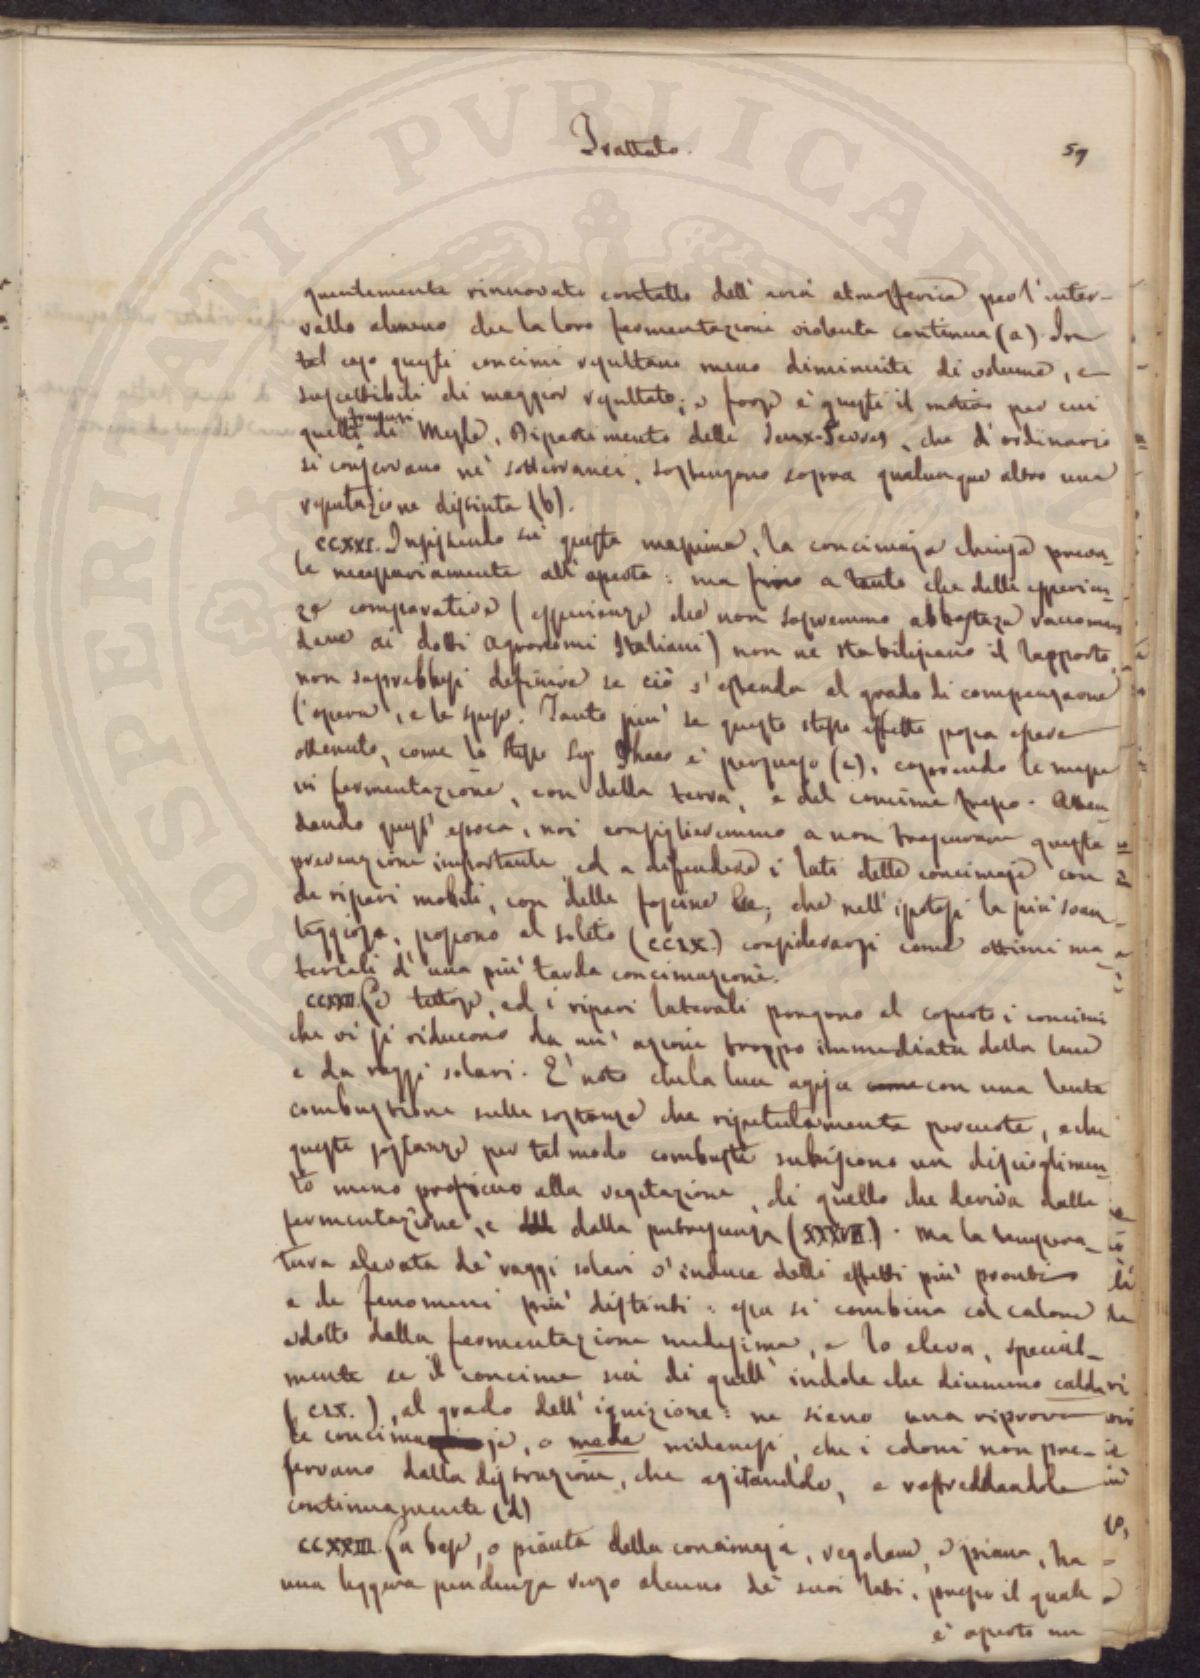 Trattato.
59
quentemente rinnovato contatto dell'aria atmosferica per l'inter-
vallo almeno che la loro fermentazione violenta continua (a). In
tal caso questi concimi risultano meno diminuiti di volume, e
suscettibili di maggior risultato; e forse è questo il motivo per cui
francesi
quelli di Mesle, Dipartimento delle Deux-Sevres, che d'ordinario
si conservano ne' sotterranei, sostengono sopra qualunque altro una
reputazione distinta (b).
CCXXI. Insistendo su questa massima, la concimaja chiusa preva-
le necessariamente all'aperta: ma fino a tanto che delle esperien-
ze comparative (esperienze che non sapremmo abbastanza raccoman
dare ai dotti Agronomi Italiani) non ne stabiliscano il rapporto,
non saprebbesi definire se ciò s'estenda al grado di compensarne
l'opera, e le spese. Tanto più se questo stesso effetto possa essere
ottenuto, come lo stesso Sig. è persuaso (c), coprendo le masse
in fermentazione, con della terra, e del concime fresco. Atten-
dendo quest'epoca, noi consiglieremmo a non trascurare questa
precauzione importante ed a difendere i lati delle concimaje con
de ripari mobili, con delle fascine &c; che nell'ipotesi la più svan-
taggiosa, possono al solito (CCIX.) considerarsi come ottimi ma-
teriali d'una più tarda concimazione.
CCXXII. Le tettoje, ed i ripari laterali pongono al coperto i concimi
che vi si riducono da un'azione troppo immediata della luce
e da raggi solari. E' noto che la luce agisce come con una lenta
combustione sulle sostanze che ripetutamente percuote, e che
queste sostanze per tal modo combuste subiscono un discioglimen-
to meno proficuo alla vegetazione, di quello che deriva dalla
fermentazione, e dalla putrescenza (XXXVII.). Ma la tempera-
tura elevata de' raggi solari v'induce delli effetti più pronti
e de fenomeni più distinti: essa si combina col calore
svolto dalla fermentazione medesima, e lo eleva, special-
mente se il concime sia di quell'indole che diciamo caldo
(CLX.), al grado dell'ignizione: ne sieno una riprova
le concimaje, o mede milanesi, che i coloni non pre-
servano dalla distruzione, che agitandole, e raffreddandole
continuamente (d)
CCXXIII. La base, o pianta della concimaja, regolare, e piana, ha
una leggera pendenza verso alcuno de' suoi lati, presso il quale
è aperto un